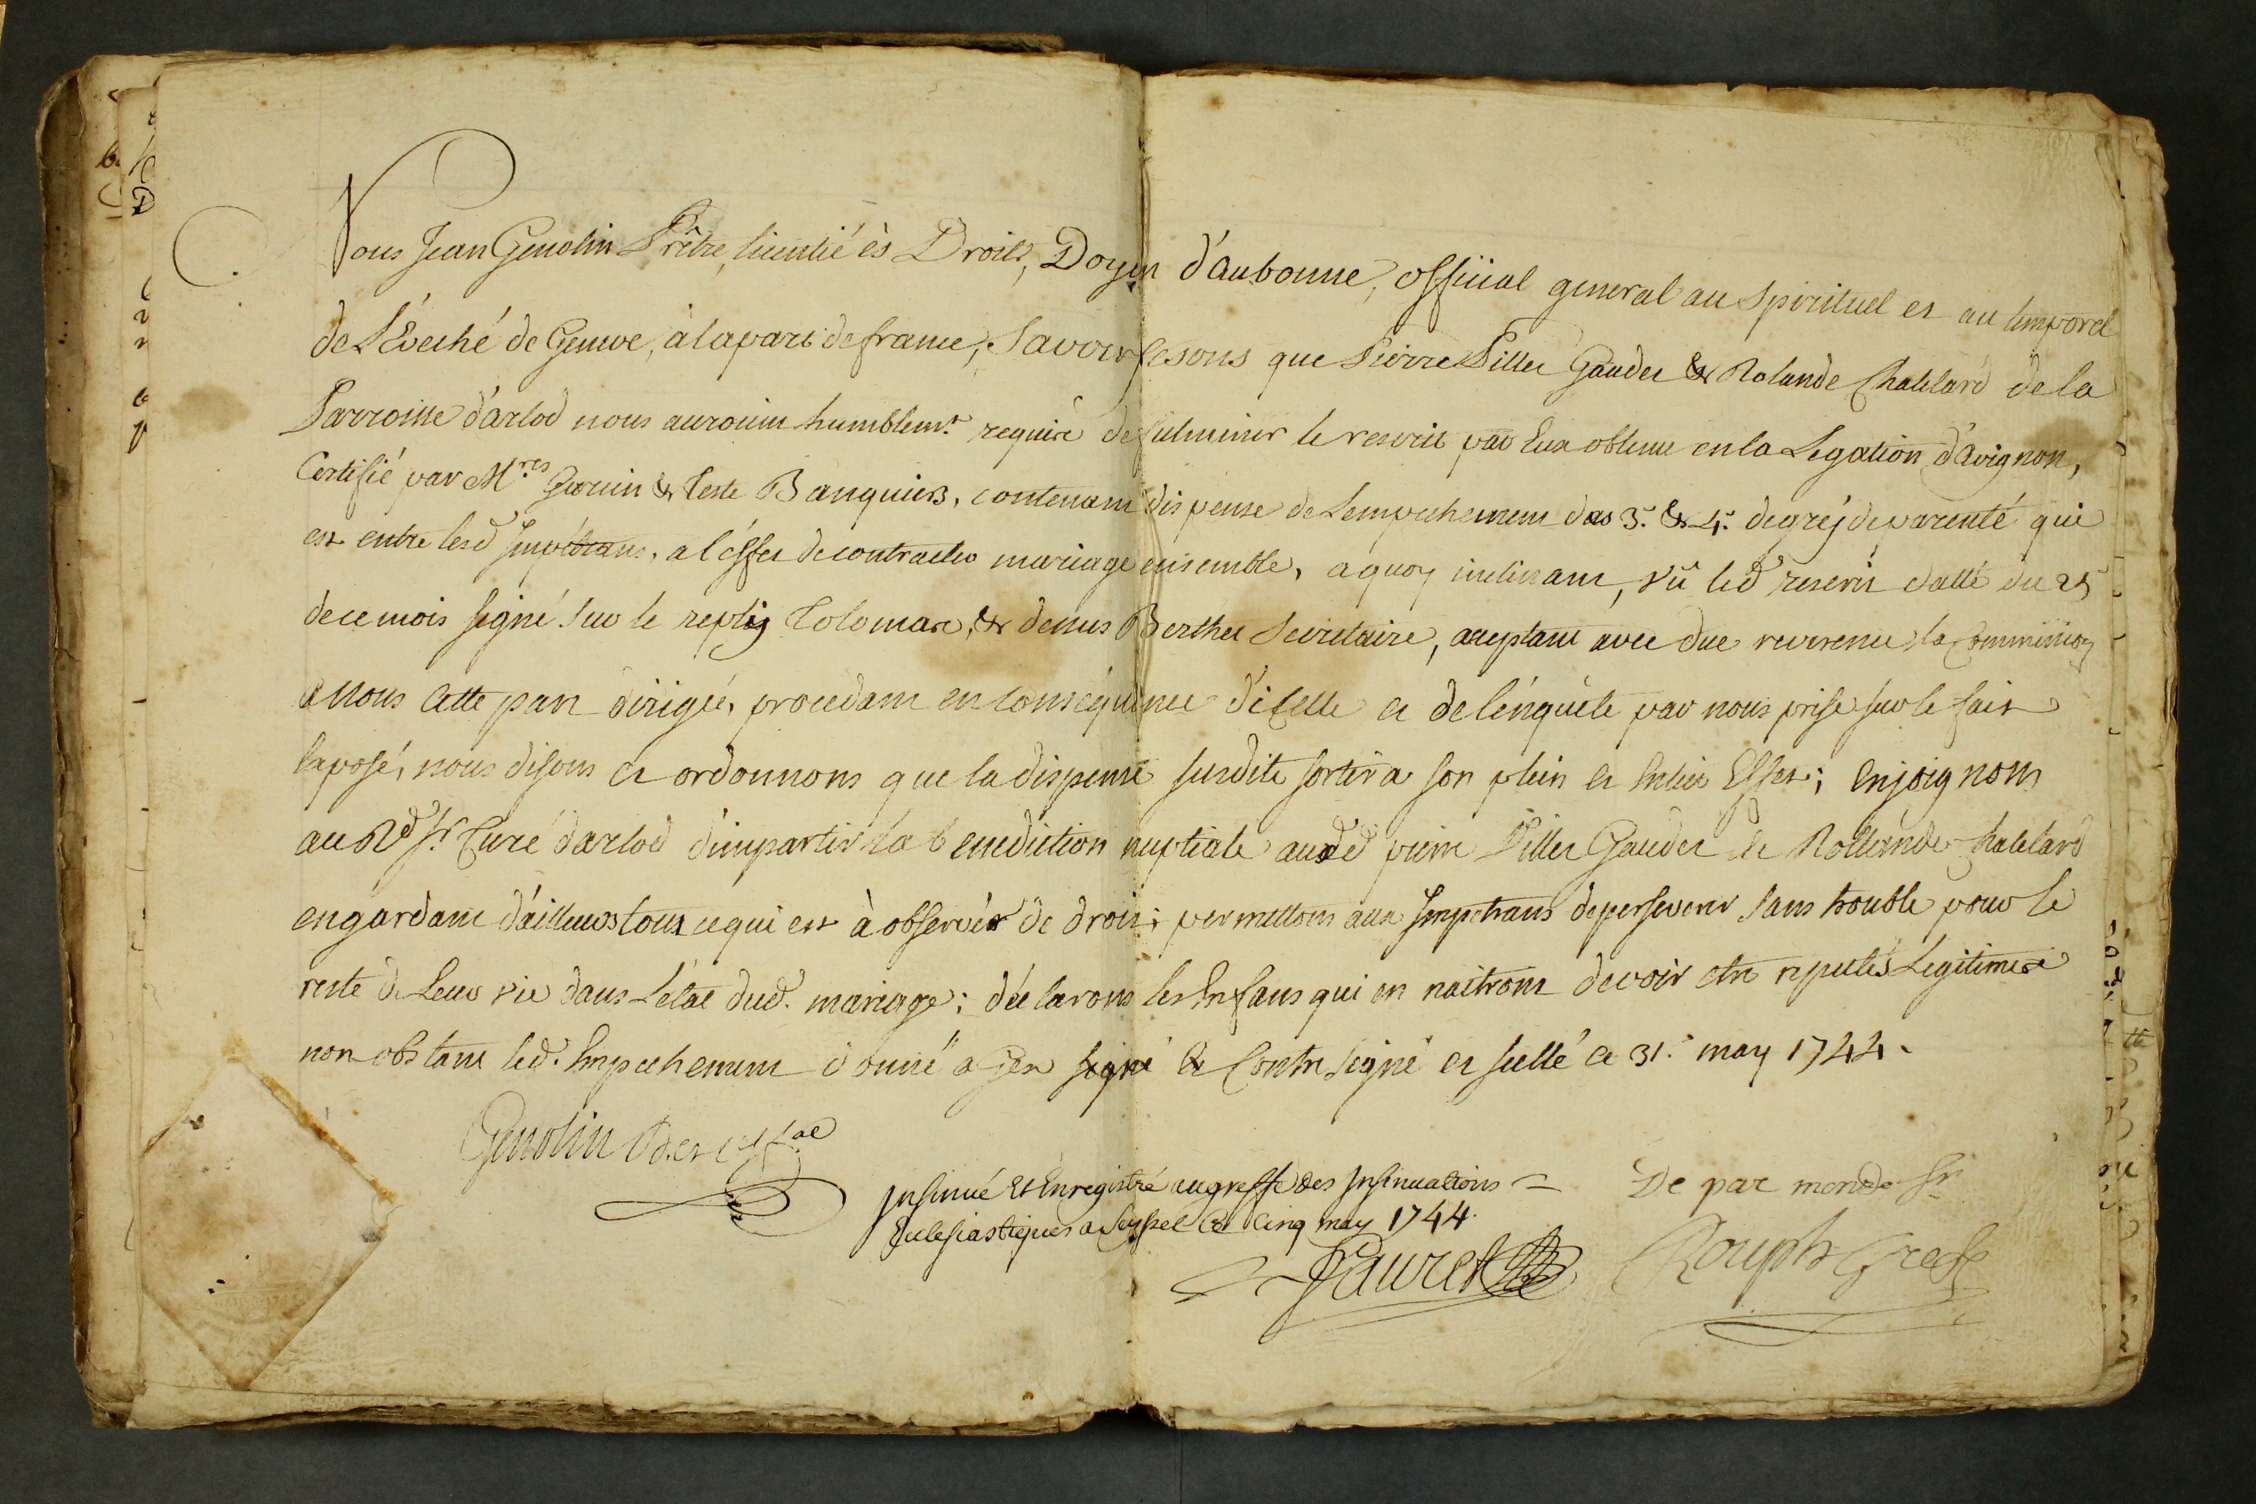 Nous Jean Genolin Prêtre, licentié ès Droits, Doyen d'aubonne, official general au spirituel et au temporel
de L'Eveché de Geneve, à la part de france, savoir fesons que Pierre Piller Gauder & Rolande Chatelard de la
Parroisse d'arlod nous auroient humblemt. requiré de fulminer le rescrit par Eux obtenu en la Legation d'avignon,
Certifié par Mres & Teste Banquiers, contenant dispense de L'empechement des 3e. & 4e. degréz de parenté qui
est entre lesd Impétrans, a l'effet de contracter mariage ensemble, a quoy inclinant, vû led rescrit datté du 25
de ce mois signé sur le reply Tolomare, & dessus Berthet secretaire, acceptant avec due reverence la Commission
a Nous cette part dirigée, procedant en consequence d'icelle et de l'enquête par nous prise sur le fait
Exposé, nous disons et ordonnons que la dispense susdite sortira son plein et Entier Effet; Enjoignons
au Rd Sr. Curé d'arlod d'impartir la benediction nuptiale auxd pierre Piller Gauder & Rollande Chatelard
en gardant d'ailleurs tout ce qui est à observer de droit; permettons aux Impetrans de perseverer sans trouble pour le
reste de Leur vie dans L'état dud. mariage; déclarons les Enfans qui en naitront devoir etre reputés Legitimes
non obstant led. Empechement donné a Gex signé & Contresigné et scellé ce 31. may 1744.
Genolin
Insinué Et Enregistré au greffe des Insinuations
Eclesiastiques a Seyssel Ce Cinq may 1744.
De par mondt Sr
Fauret